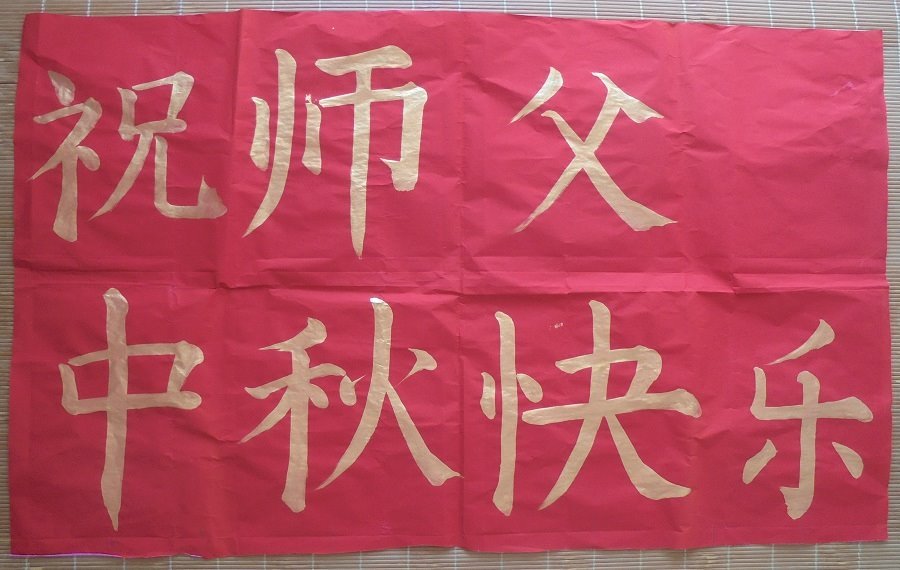 祝师父
中秋快乐